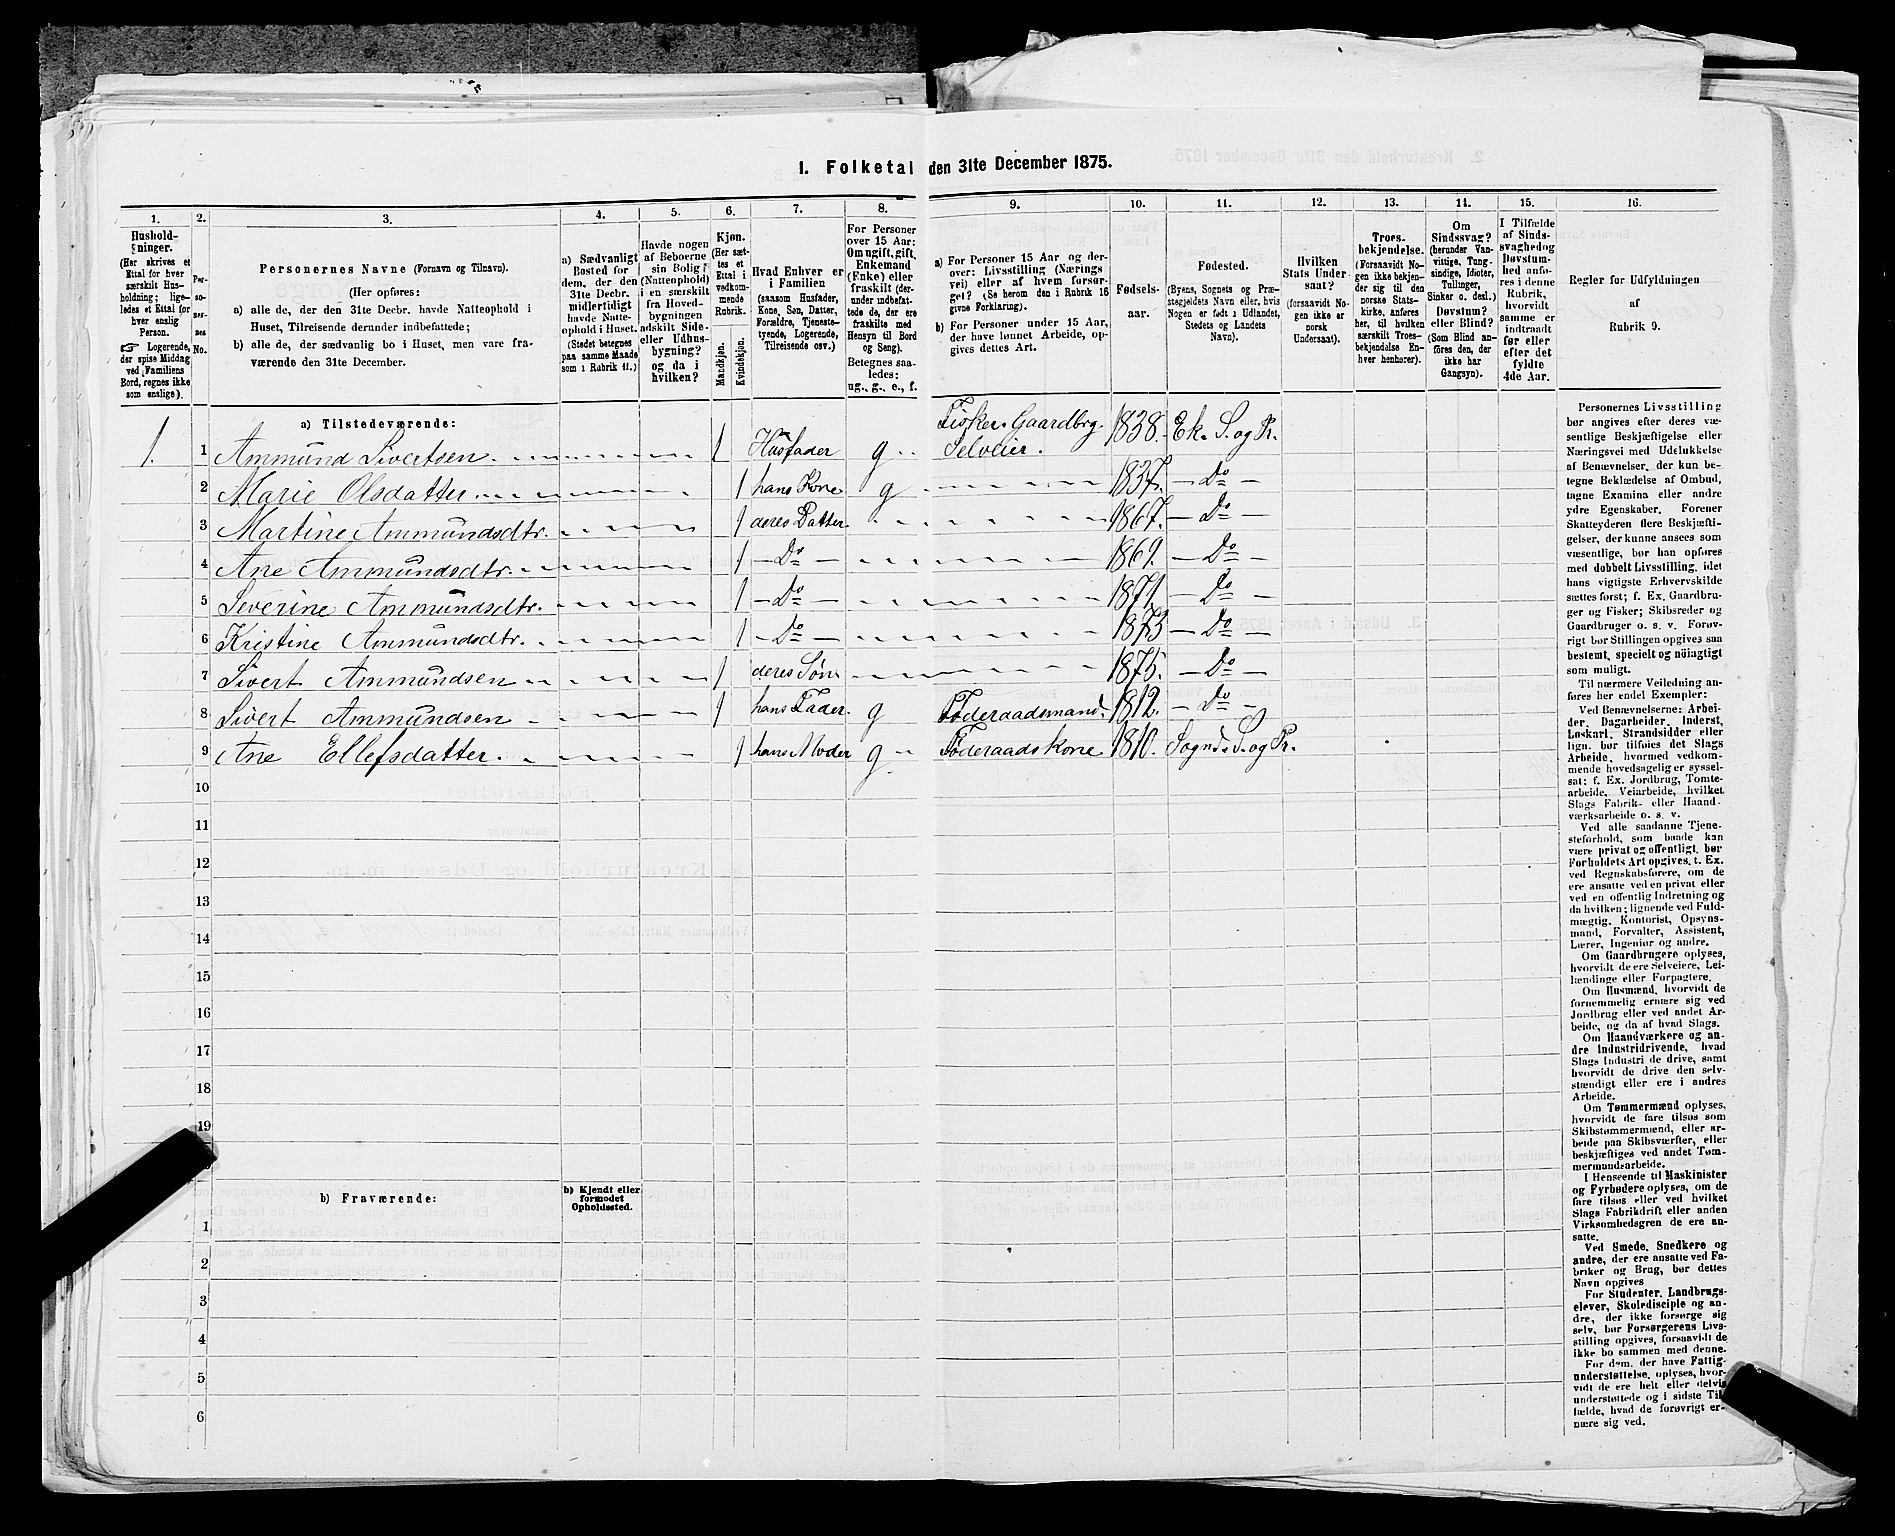 1. Folketal den 31te December 1875.
1. 2. 3. 4. 5. 6. 7. 8. 9. 10. 11. 12. 13. 14. 15. 16.
Hushold-
ninger.
(Her skrives et
Ettal for hver
særskilt Hus-
holdning; lige-
ledes et Ettal for
hver enslig
Person.
☞ Logerende,
der spise Middag
ved Familiens
Bord, regnes ikke
som enslige).
Per-
so-
ner-
nes
No.
Personernes Navne (Fornavn og Tilnavn).
(Her opføres:
a) alle de, der den 31te Decbr. havde Natteophold i
Huset, Tilreisende derunder indbefattede;
b) alle de, der sædvanlig bo i Huset, men vare fra-
værende den 31te December.
a) Sædvanligt
Bosted for
dem, der den
31te Decbr.
midlertidigt
havde Natte-
ophold i Huset.
(Stedet betegnes
paa samme Maade
som i Rubrik 11.)
Havde nogen
af Beboerne
sin Bolig
(Natteophold)
i en særskilt
fra Hoved-
bygningen
adskilt Side-
eller Udhus-
bygning?
og da i
hvilken?
Kjøn.
(Her sæt-
tes et
Ettal i
vedkom-
mende
Rubrik.
Mandkjøn.
Kvindekjøn.
Hvad Enhver er
i Familien
(saasom Husfader,
Kone, Søn, Datter,
Forældre, Tjeneste-
tyende, Logerende,
Tilreisende osv.)
For Personer
over 15 Aar:
Om ugift, gift,
Enkemand
(Enke) eller
fraskilt (der-
under indbefat-
tede de, der ere
fraskilte med
Hensyn til Bord
og Seng).
Betegnes saa-
ledes:
ug., g., e., f.
a) For Personer 15 Aar og der-
over: Livsstilling (Nærings
vei) eller af hvem forsør-
get? (Se herom den i Rubrik 16
givne Forklaring).
b) For Personer under 15 Aar,
der have lønnet Arbeide, op-
gives dettes Art.
Fødsels-
aar.
Fødested.
(Byens, Sognets og Præ-
stegjeldets Navn eller, hvis
Nogen er født i Udlandet,
Stedets og Landets
Navn).
Hvilken
Stats Under-
saat?
(forsaavidt No-
gen ikke er
norsk
Undersaat).
Troes-
bekjendelse.
(Forsaavidt No-
gen ikke bekjen-
der sig til den
norske Stats-
kirke, anføres
her, til hvilken
særskilt Troes-
bekjendelse En-
hver henhører).
Om
Sindssvag?
(herunder Van-
vittige, Tung-
sindige, Idioter,
Tullinger,
Sinker o. desl.)
Døvstum?
eller Blind?
(Som Blind an-
føres den, der
ikke har
Gangsyn).
I Tilfælde
af Sinds-
svaghed og
Døvstum-
hed anfø-
res i denne
Rubrik,
hvorvidt
samme er
indtraadt
før eller
efter det
fyldte
4de Aar.
Regler for Udfyldningen
af
Rubrik 9.
a) Tilstedeværende:
1. 1 Ammund Sivertsen 1 Husfader g Fisker. Gaardbrg. Selveier. 1838. Ek. S. og Pr.
2 Marie Olsdatter 1 hans Kone g 1837. Do
3 Martine Ammundsdtr. 1 deres Datter 1867. Do
4 Ane Ammundsdtr. 1 Do 1869. Do
5 Severine Ammundsdtr. 1 Do 1871. Do
6 Kristine Ammundsdtr. 1 Do 1873 Do
7 Sivert Ammundsen 1 deres Søn 1875. Do
8 Sivert Ammundsen 1 hans Fader. g Føderaadsmand. 1812. Do
9 Ane Ellefsdatter. 1 hans Moder g Føderaadskone 1810. Sognd. S. og Pr.
10
11
12
13
14
15
16
17
18
19
b) Fraværende:
b) Kjendt eller
formodet
Opholdssted.
1
2
3
4
5
6
Personernes Livsstilling
bør angives efter deres væ-
sentlige Beskjæftigelse eller
Næringsvei med Udelukkelse
af Benævnelser, der kun be-
tegne Beklædelse af Ombud,
tagne Examina eller andre
ydre Egenskaber. Forener
Skatteyderen flere Beskjæfti-
gelser, der kunne ansees som
væsentlige, bør han opføres
med dobbelt Livsstilling, idet
hans vigtigste Erhvervskilde
sættes først; f. Ex. Gaardbru-
ger og Fisker; Skibsreder og
Gaardbruger o. s. v. Forøv-
rigt bør Stillingen opgives saa
bestemt, specielt og nöiagtigt
som muligt.
Til nærmere Veiledning an-
føres her endel Exempler:
Ved Benævnelserne: Arbei-
der, Dagarbeider, Inderst,
Løskarl, Strandsidder eller
lign. bør tilføies det Slags
Arbeide, hvormed vedkom-
mende hovedsagelig er syssel-
sat; f. Ex. Jordbrug, Tomte-
arbeide, Veiarbeide, hvilket
Slags Fabrik- eller Haand-
værksarbeide o. s. v.
Ved alle saadanne Tjene-
steforhold, som baade kan
være privat og offentligt, bør
Forholdets Art opgives, t. Ex.
ved Regnskabsførere, om de
ere ansatte ved en privat eller
ved en offentlig Indretning og
da hvilken; lignende ved Fuld-
mægtig, Kontorist, Opsyns-
mand, Forvalter, Assistent,
Lærer, Ingeniør og andre.
Om Gaardbrugere oplyses,
hvorvidt de ere Selveiere, Lei-
lændinge eller Forpagtere.
Om Husmænd, hvorvidt de
fornemmelig ernære sig ved
Jordbrug eller ved andet Ar-
beide, og da af hvad Slags.
Om Haandværkere og an-
dre Industridrivende, hvad
Slags Industri de drive, samt
hvorvidt de drive den selv-
stændigt eller ere i andres
Arbeide.
Om Tømmermænd oplyses,
hvorvidt de fare tilsøs som
Skibstømmermænd, eller ar-
beide paa Skibsværfter, eller
beskjæftiges ved andet Tøm-
mermandsarbeide.
I Henseende til Maskinister
og Fyrbødere oplyses, om de
fare tilsøs eller ved hvilket
Slags Fabrikdrift eller anden
Virksomhedsgren de ere an-
satte.
Ved Smede, Snedkere og
andre, der ere ansatte ved Fa-
briker og Brug, bør dettes
Navn opgives
For Studenter, Landbrugs-
elever, Skoledisciple og an-
dre, der ikke forsørge sig
selv, bør Forsørgerens Livs-
stilling opgives, forsaavidt de
ikke bo sammen med denne.
For dem, der have Fattig-
understøttelse, oplyses, hvor-
vidt de ere helt eller delvis
understøttede og i sidste Til-
fælde, hvad de forøvrigt er-
nære sig ved.